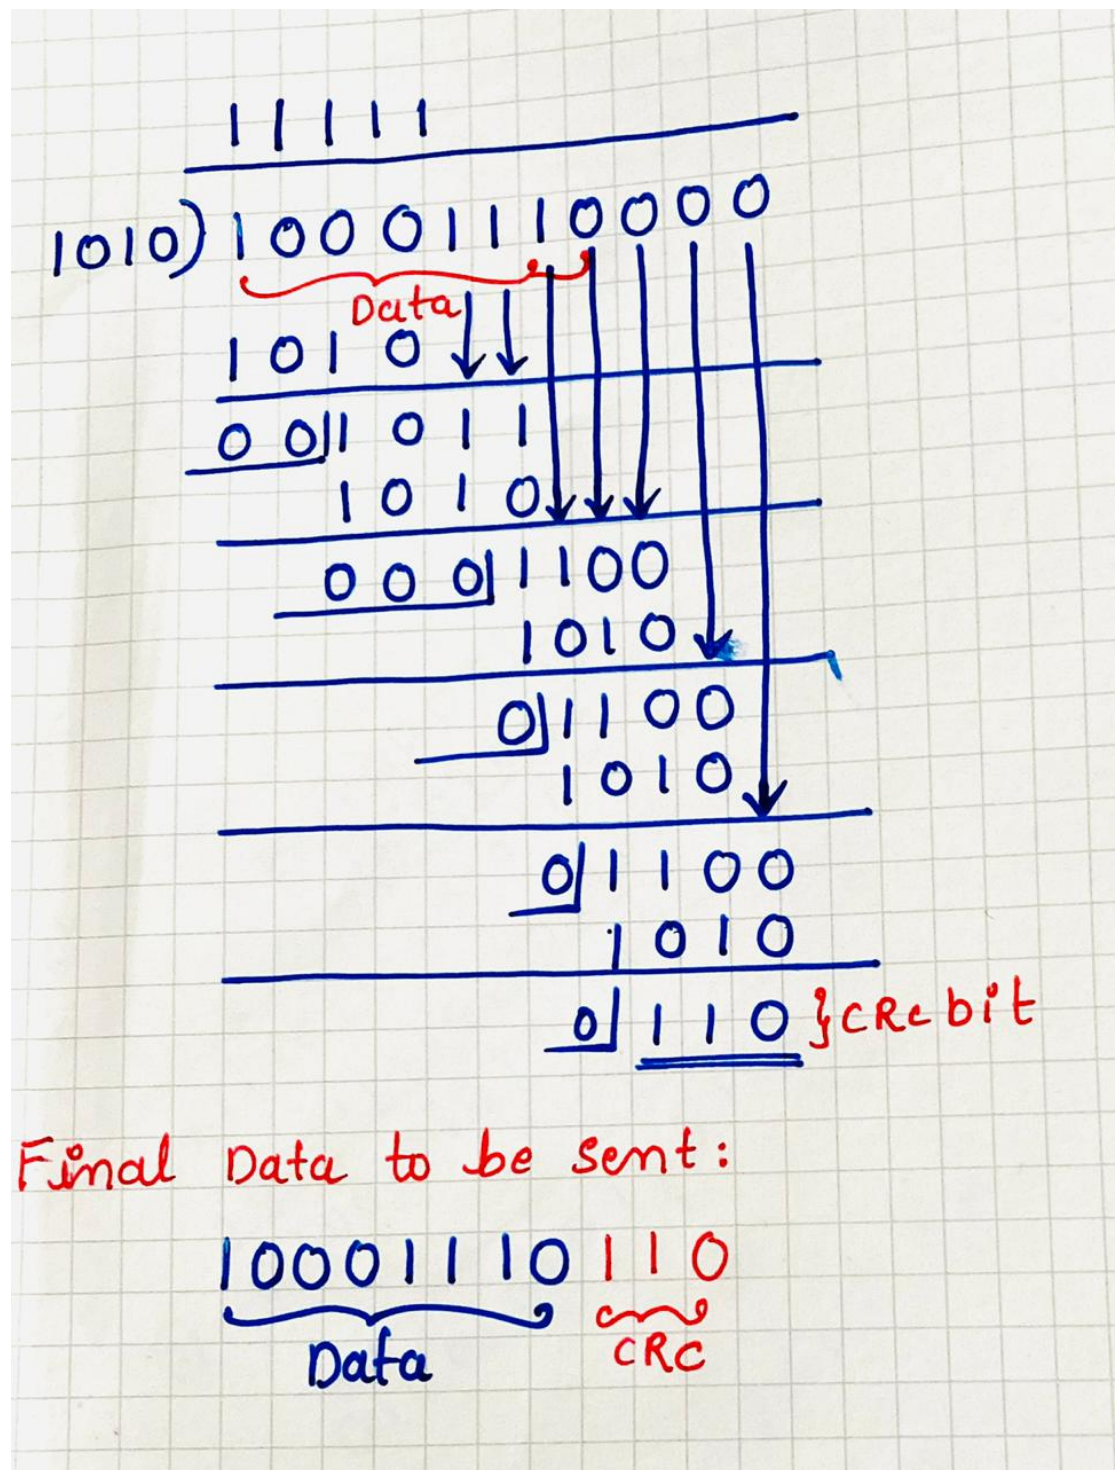 1 1 1 1 1
1010) 1 0 0 0 1 1 1 0 0 0 0
Data
1 0 1 0
0 0 1 0 1 1
1 0 1 0
0 0 0 1 1 0 0
1 0 1 0
0 1 1 0 0
1 0 1 0
0 1 1 0 0
1 0 1 0
0 1 1 0 } CRC bit
Final Data to be sent:
1 0 0 0 1 1 1 0 1 1 0
Data CRC